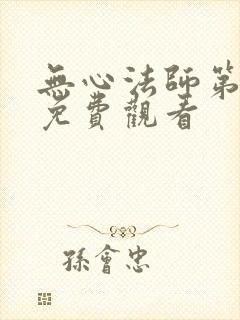 無心法師第
免費觀看
孫會忠